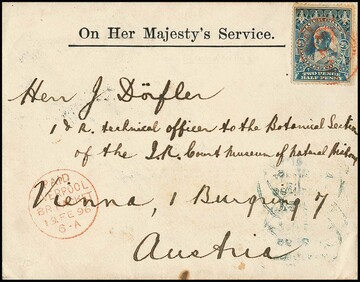 On Her Majesty's Service.
TWO PENCE
HALF PENNY
Herr J. Dörfler
I & R. technical officer to the Botanical Section
of the I. R. Court Museum of Natural History
PAID
LIVERPOOL
BR PACKET
FE 96
Vienna, 1 Burgring 7
Austria